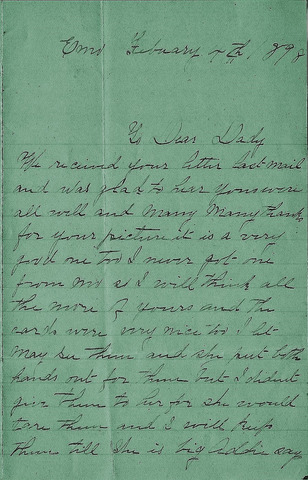 Emo February 7th, 1898
Dear Dady
We recieved your letter last mail
and was glad to hear you were
all well and Many Many thanks
for your picture it is a very
good one too I never got one
from so I will think all
the more of yours and the
cards were very nice too I let
May see them and she put both
hands out for them but I didnt
give them to her for she would
tare them and I will keep
them till she is big Addie say